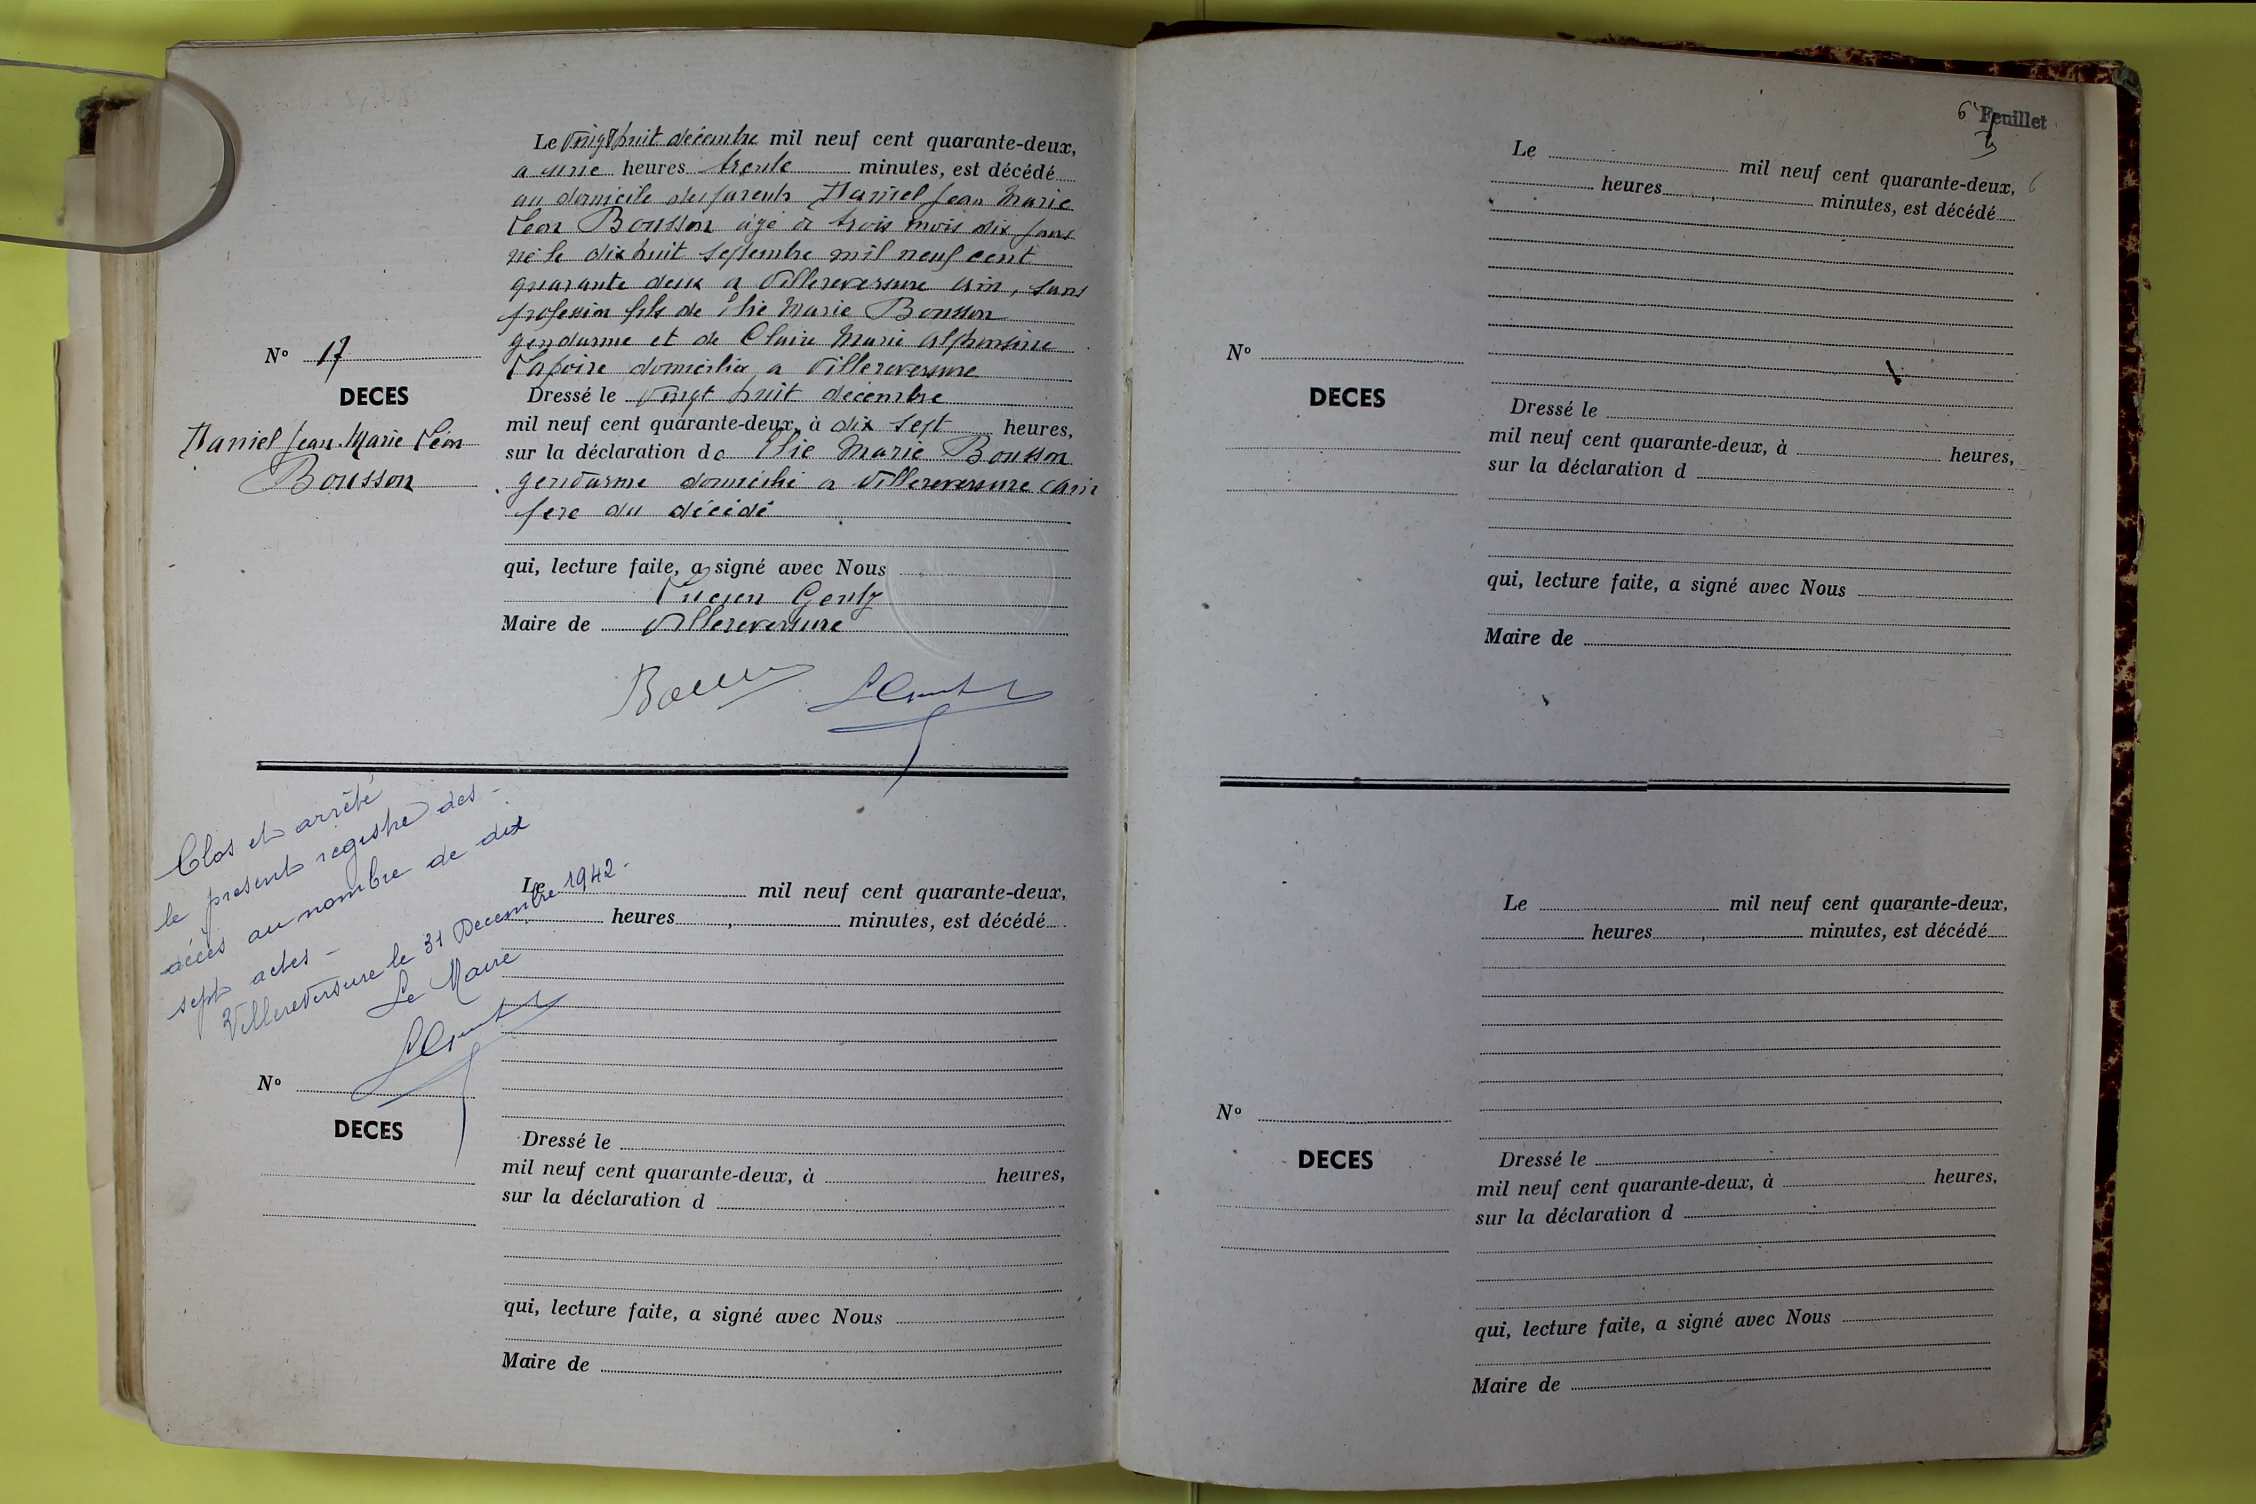 Le vingt huit décembre mil neuf cent quarante-deux,
a une heures trente minutes, est décédé
au domicile des parents Daniel Jean Marie
Léon Bousson agé de trois mois dix jours
né le dix huit septembre mil neuf cent
quarante deux a Villereversure Ain, sans
profession fils de Elie Marie Bousson
gendarme et de Claire Marie Alphonsine
Lapoire domiciliés a Villereversure
Nº 17
DECES
Daniel Jean Marie Léon
Bousson
Dressé le vingt huit décembre
mil neuf cent quarante-deux, à dix sept heures,
sur la déclaration de Elie Marie Bousson
gendarme domicilié a Villereversure Ain
père du décédé
qui, lecture faite, a signé avec Nous
Lucien
Maire de Villereversure
Clos et arrêté
le présent registre des
décès au nombre de dix
sept actes -
Villereversure le 31 Decembre 1942 -
Le Maire
Le mil neuf cent quarante-deux,
heures, minutes, est décédé
Nº
DECES
Dressé le
mil neuf cent quarante-deux, à heures,
sur la déclaration d
qui, lecture faite, a signé avec Nous
Maire de
6 Feuillet
Le mil neuf cent quarante-deux, 6
heures, minutes, est décédé
Nº
DECES
Dressé le
mil neuf cent quarante-deux, à heures,
sur la déclaration d
qui, lecture faite, a signé avec Nous
Maire de
Le mil neuf cent quarante-deux,
heures, minutes, est décédé
Nº
DECES
Dressé le
mil neuf cent quarante-deux, à heures,
sur la déclaration d
qui, lecture faite, a signé avec Nous
Maire de